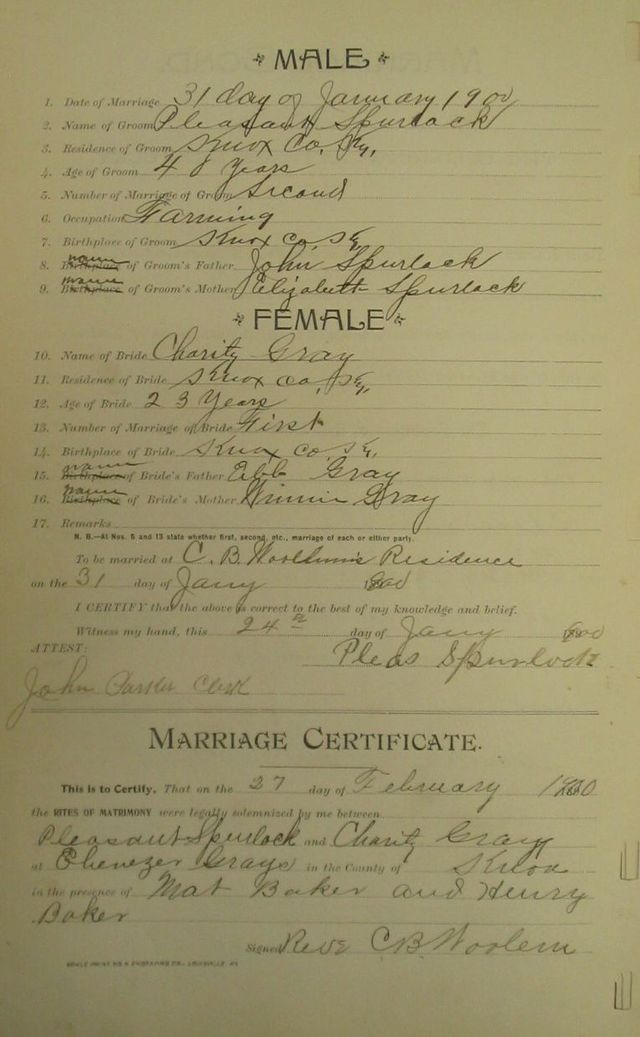 MALE
1. Date of Marriage 31 day of January 1900
2. Name of Groom Pleasant Spurlock
3. Residence of Groom Knox Co, Ky,
4. Age of Groom 40 Years
5. Number of Marriage of Groom Second
6. Occupation Farming
7. Birthplace of Groom Knox Co, Ky,
8. Birthplace name of Groom's Father John Spurlock
9. Birthplace name of Groom's Mother Elizabeth Spurlock
FEMALE
10. Name of Bride Charity Gray
11. Residence of Bride Knox Co, Ky,
12. Age of Bride 23 Years
13. Number of Marriage of Bride First
14. Birthplace of Bride Knox Co, Ky,
15. Birthplace name of Bride's Father Ebb Gray
16. Birthplace name of Bride's Mother Winnie Gray
17. Remarks
N. B.—At Nos. 5 and 13 state whether first, second, etc., marriage of each or either party.
To be married at C. B. Residence
on the 31 day of Jany 1900
I CERTIFY that the above is correct to the best of my knowledge and belief.
Witness my hand, this 24 day of Jany 1900
ATTEST: Pleas Spurlock
John Parker Clerk
MARRIAGE CERTIFICATE.
This is to Certify, That on the 27 day of February 1900
the RITES OF MATRIMONY were legally solemnized by me between
Pleasant Spurlock and Charity Gray
at Ebenezer Grays in the County of Knox
in the presence of Mat Baker and Henry
Baker
Signed Reve C B Woolem